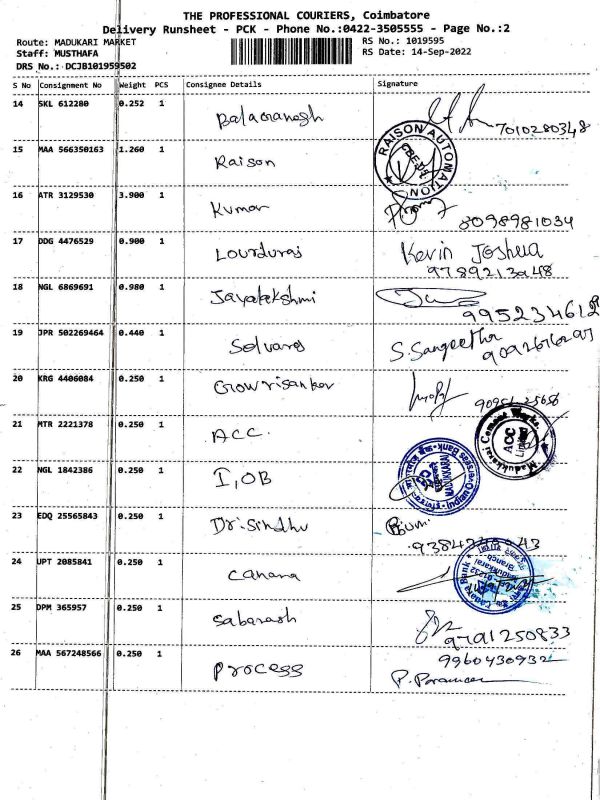 THE PROFESSIONAL COURIERS, Coimbatore
Delivery Runsheet - PCK - Phone No.:0422-3505555 - Page No.:2
Route: MADUKARI MARKET RS No.: 1019595
Staff: MUSTHAFA RS Date: 14-Sep-2022
DRS No.: DCJB101959502
S No Consignment No Weight PCS Consignee Details Signature
14 SKL 612280 0.252 1 Balamanogh 7010280348
15 MAA 566350163 1.260 1 Raison RAISON AUTOMATION CBE-05
16 ATR 3129530 3.900 1 Kumar 8098981034
17 DDG 4476529 0.900 1 Lourduraj Kevin Joshua
9789213048
18 NGL 6869691 0.980 1 Jayalakshmi
9952346128
19 JPR 502269464 0.440 1 Selvaraj S. Sangeetha
20 KRG 4406084 0.250 1 Gowrisankar
21 MTR 2221378 0.250 1 ACC. Madukkarai Cement Works ACC Limited
22 NGL 1842386 0.250 1 I,OB Indian Overseas Bank
23 EDQ 25565843 0.250 1 Dr.Sindhu
24 UPT 2085841 0.250 1 Canara Canara Bank Madukkarai Branch
25 DPM 365957 0.250 1 Sabarash
9701250833
26 MAA 567248566 0.250 1 Process 9960430932